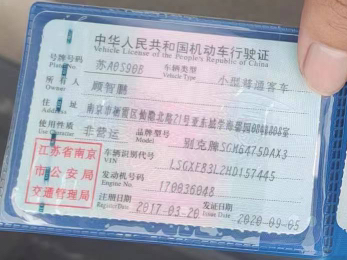 中华人民共和国机动车行驶证
Vehicle License of the People's Republic of China
号牌号码 苏A0S90B 车辆类型 小型普通客车
Plate No. Vehicle Type
所有人 顾智鹏
Owner
住址
Address
使用性质 非营运 品牌型号 别克牌SGM6475DAX3
Use Character Model
江苏省南京
市公安局
交通管理局
车辆识别代号 LSGXF83L2HD157445
VIN
发动机号码 170036048
Engine No.
注册日期 2017-03-20 发证日期 2020-09-05
Register Date Issue Date